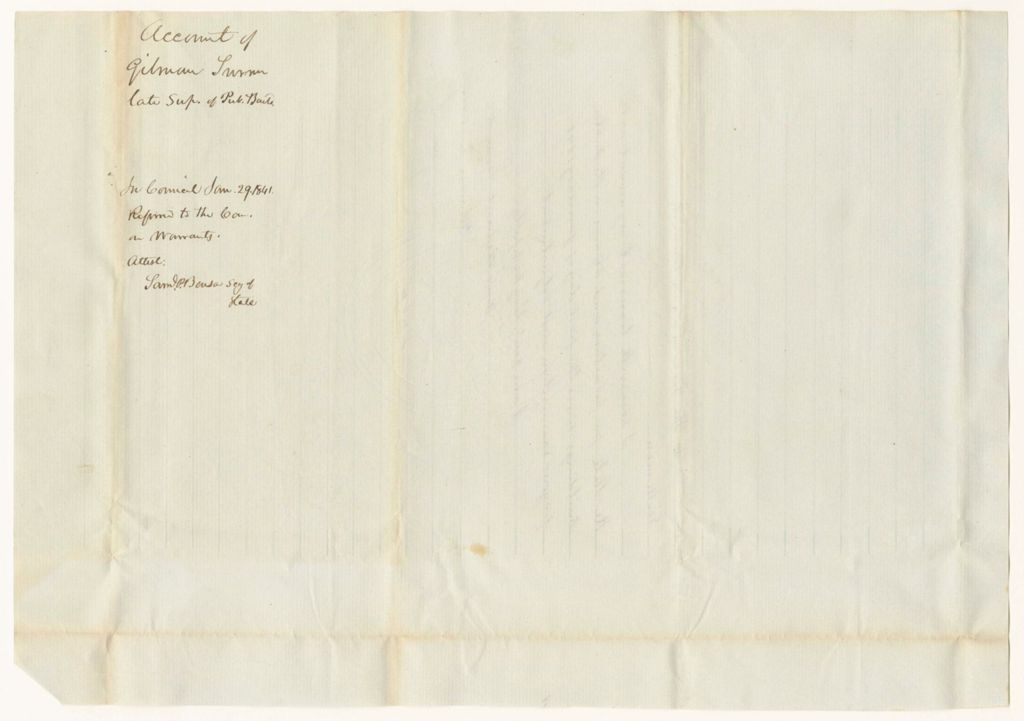 Account of
Gilman Turner
late Sup. of Pub. Build
In Council Jan. 29. 1841.
Referred to the Com.
on Warrants.
Attest:
Saml. P. Benson Secy of
State